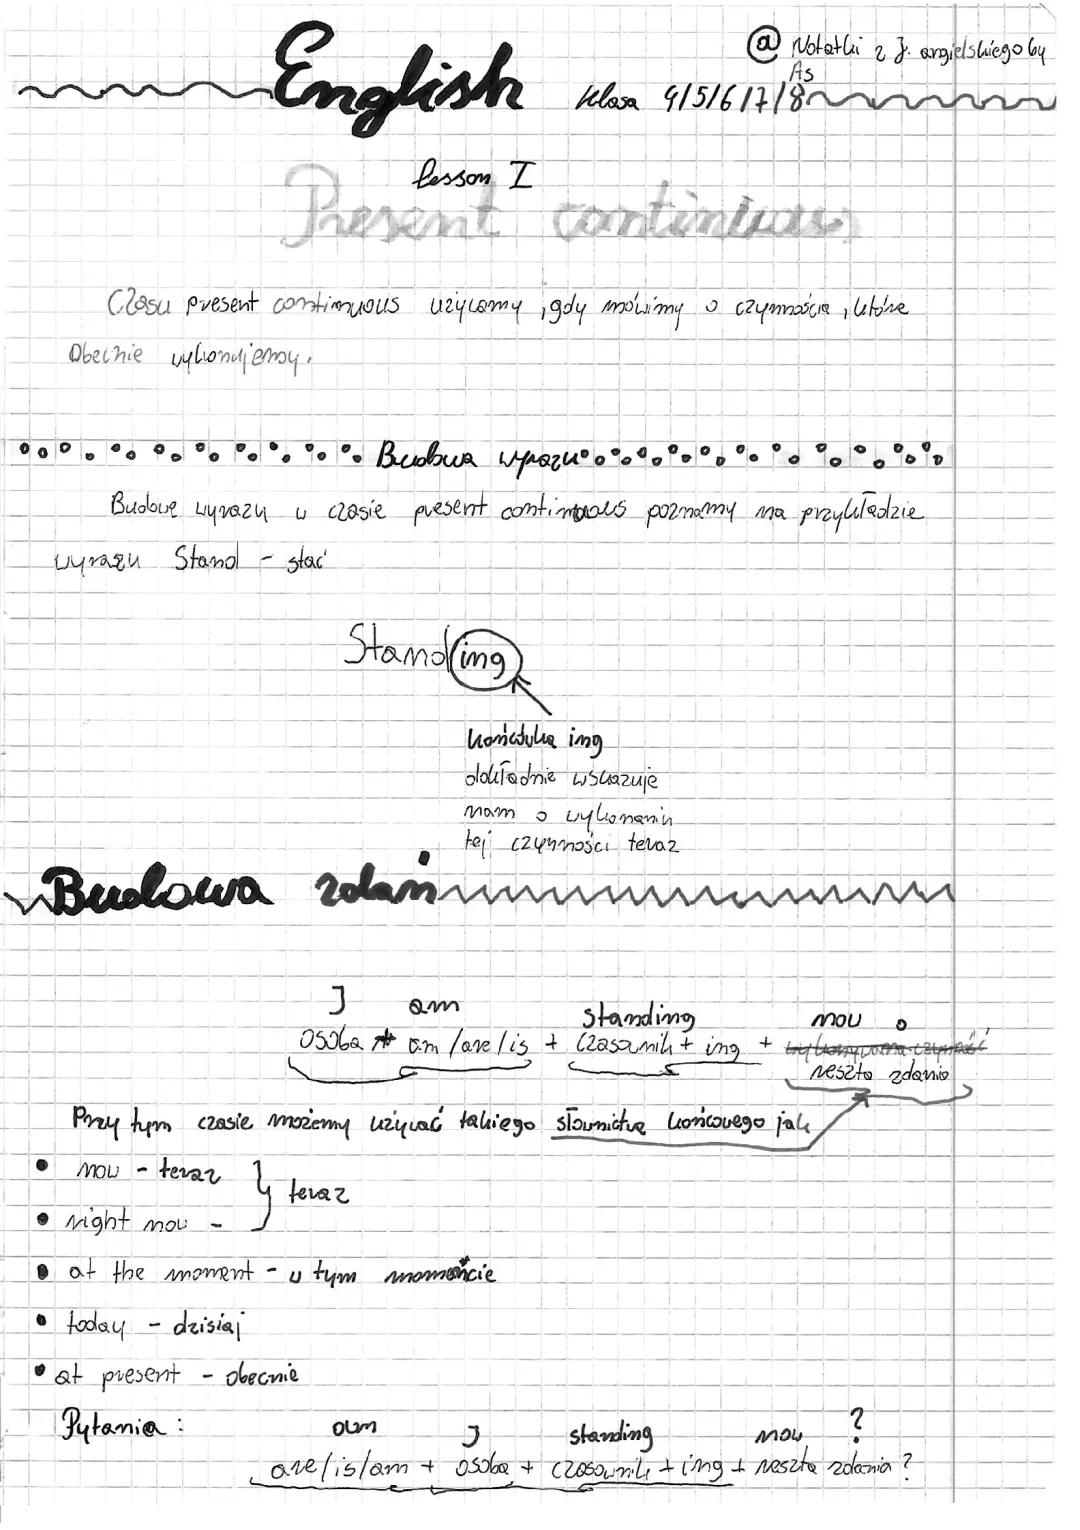 @ Notatki z J. angielskiego by
As
English klasa 4/5/6/7/8
lesson I
Present continuous
Czasu present continuous używamy, gdy mówimy o czynnościa, które
Obecnie wykonujemy.
Budowa wyrazu
Budowę wyrazu w czasie present continuous poznamy na przykładzie
wyrazu Stand - stać
Standing
końcówka ing
dokładnie wskazuje
nam o wykonaniu
tej czynności teraz
Budowa zdań
I am standing now
osoba + am/are/is + czasownik + ing + reszta zdania
Przy tym czasie możemy używać takiego słownictwa końcowego jak
• now - teraz
teraz
• right now -
• at the moment - w tym momencie
• today - dzisiaj
• at present - obecnie
Pytania: am I standing now ?
are/is/am + osoba + czasownik + ing + reszta zdania ?